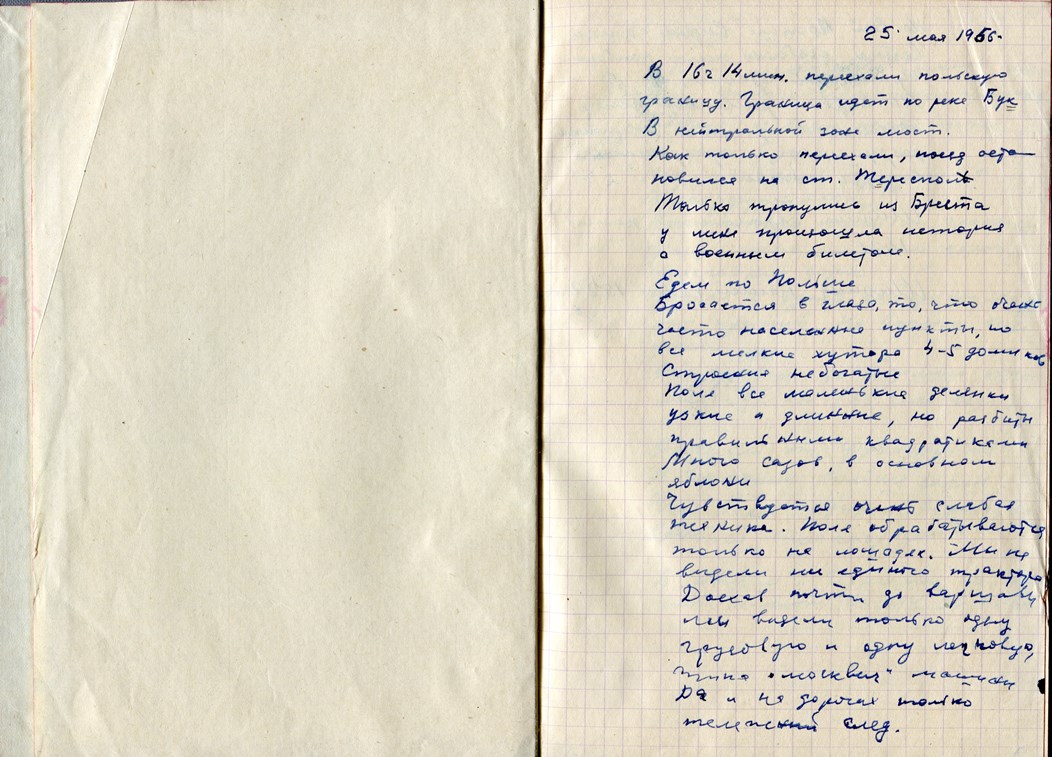 25 мая 1956.
В 16ч 14мин. переехали польскую
границу. Граница идет по реке Буг
В нейтральной зоне мост.
Как только переехали, поезд оста-
новился на ст. Тересполь
Только тронулись из Бреста
у меня произошла история
с военным билетом.
Едем по Польше
Бросается в глаза, то, что очень
часто населенные пункты, но
все мелкие хутора 4-5 домиков
Строения небогатые
Поля все маленькие делянки
узкие и длинные, но разбиты
правильными квадратиками
Много садов, в основном
яблони
Чувствуется очень слабая
техника. Поля обрабатываются
только на лошадях. Мы не
видели ни единого трактора
Доехав почти до Варшавы
мы видели только одну
грузовую и одну легковую,
типа "москвич" машины
Да и на дорогах только
тележный след.